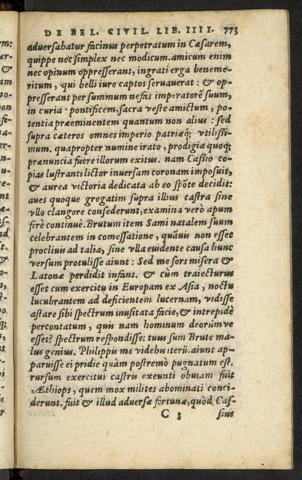 DE BEL. CIVIL. LIB. IIII. 773
aduersabatur facinus perpetratum in Cæsarem,
quippe nec simplex nec modicum. amicum enim
nec opinum oppresserant, ingrati erga benemeritum,
ritum, qui belli iure captos seruauerat: & oppresserant
presserant per summum nefas imperatorē suum,
in curia. pontificem, sacra veste amictum, potentia
tentia præeminentem quantum non alius: sed
supra cæteros omnes imperio patriæq́; vtilissimum.
mum. quapropter numine irato, prodigia quoq;
prænuncia fuere illorum exitus. nam Cassio copias
pias lustranti lictor inuersam coronam imposuit,
& aurea victoria dedicata ab eo spōte decidit:
aues quoque gregatim supra illius castra sine
vllo clangore consederunt, examina verò apum
ferè continuè. Brutum item Sami natalem suum
celebrantem in comessatione, quāuis non esset
procliuis ad talia, sine vlla euidente causa hunc
versum protulisse aiunt: Sed me sors misera &
Latonæ perdidit infans. & cùm traiecturus
esset cum exercitu in Europam ex Asia, noctu
lucubrantem ad deficientem lucernam, vidisse
astare sibi spectrum inusitata facie, & intrepidè
percontatum, quis nam hominum deorúmve
esset? spectrum respondisse: tuus sum Brute malus
lus genius. Philippis me videbis iterū. aiunt apparuisse
paruisse ei pridie quàm postremò pugnatum est.
rursum exercitui castris exeunti obuiam fuit
Æthiops, quem mox milites abominati conciderunt.
derunt. fuit & illud aduersæ fortunæ, quòd Cas-
C 3 sius